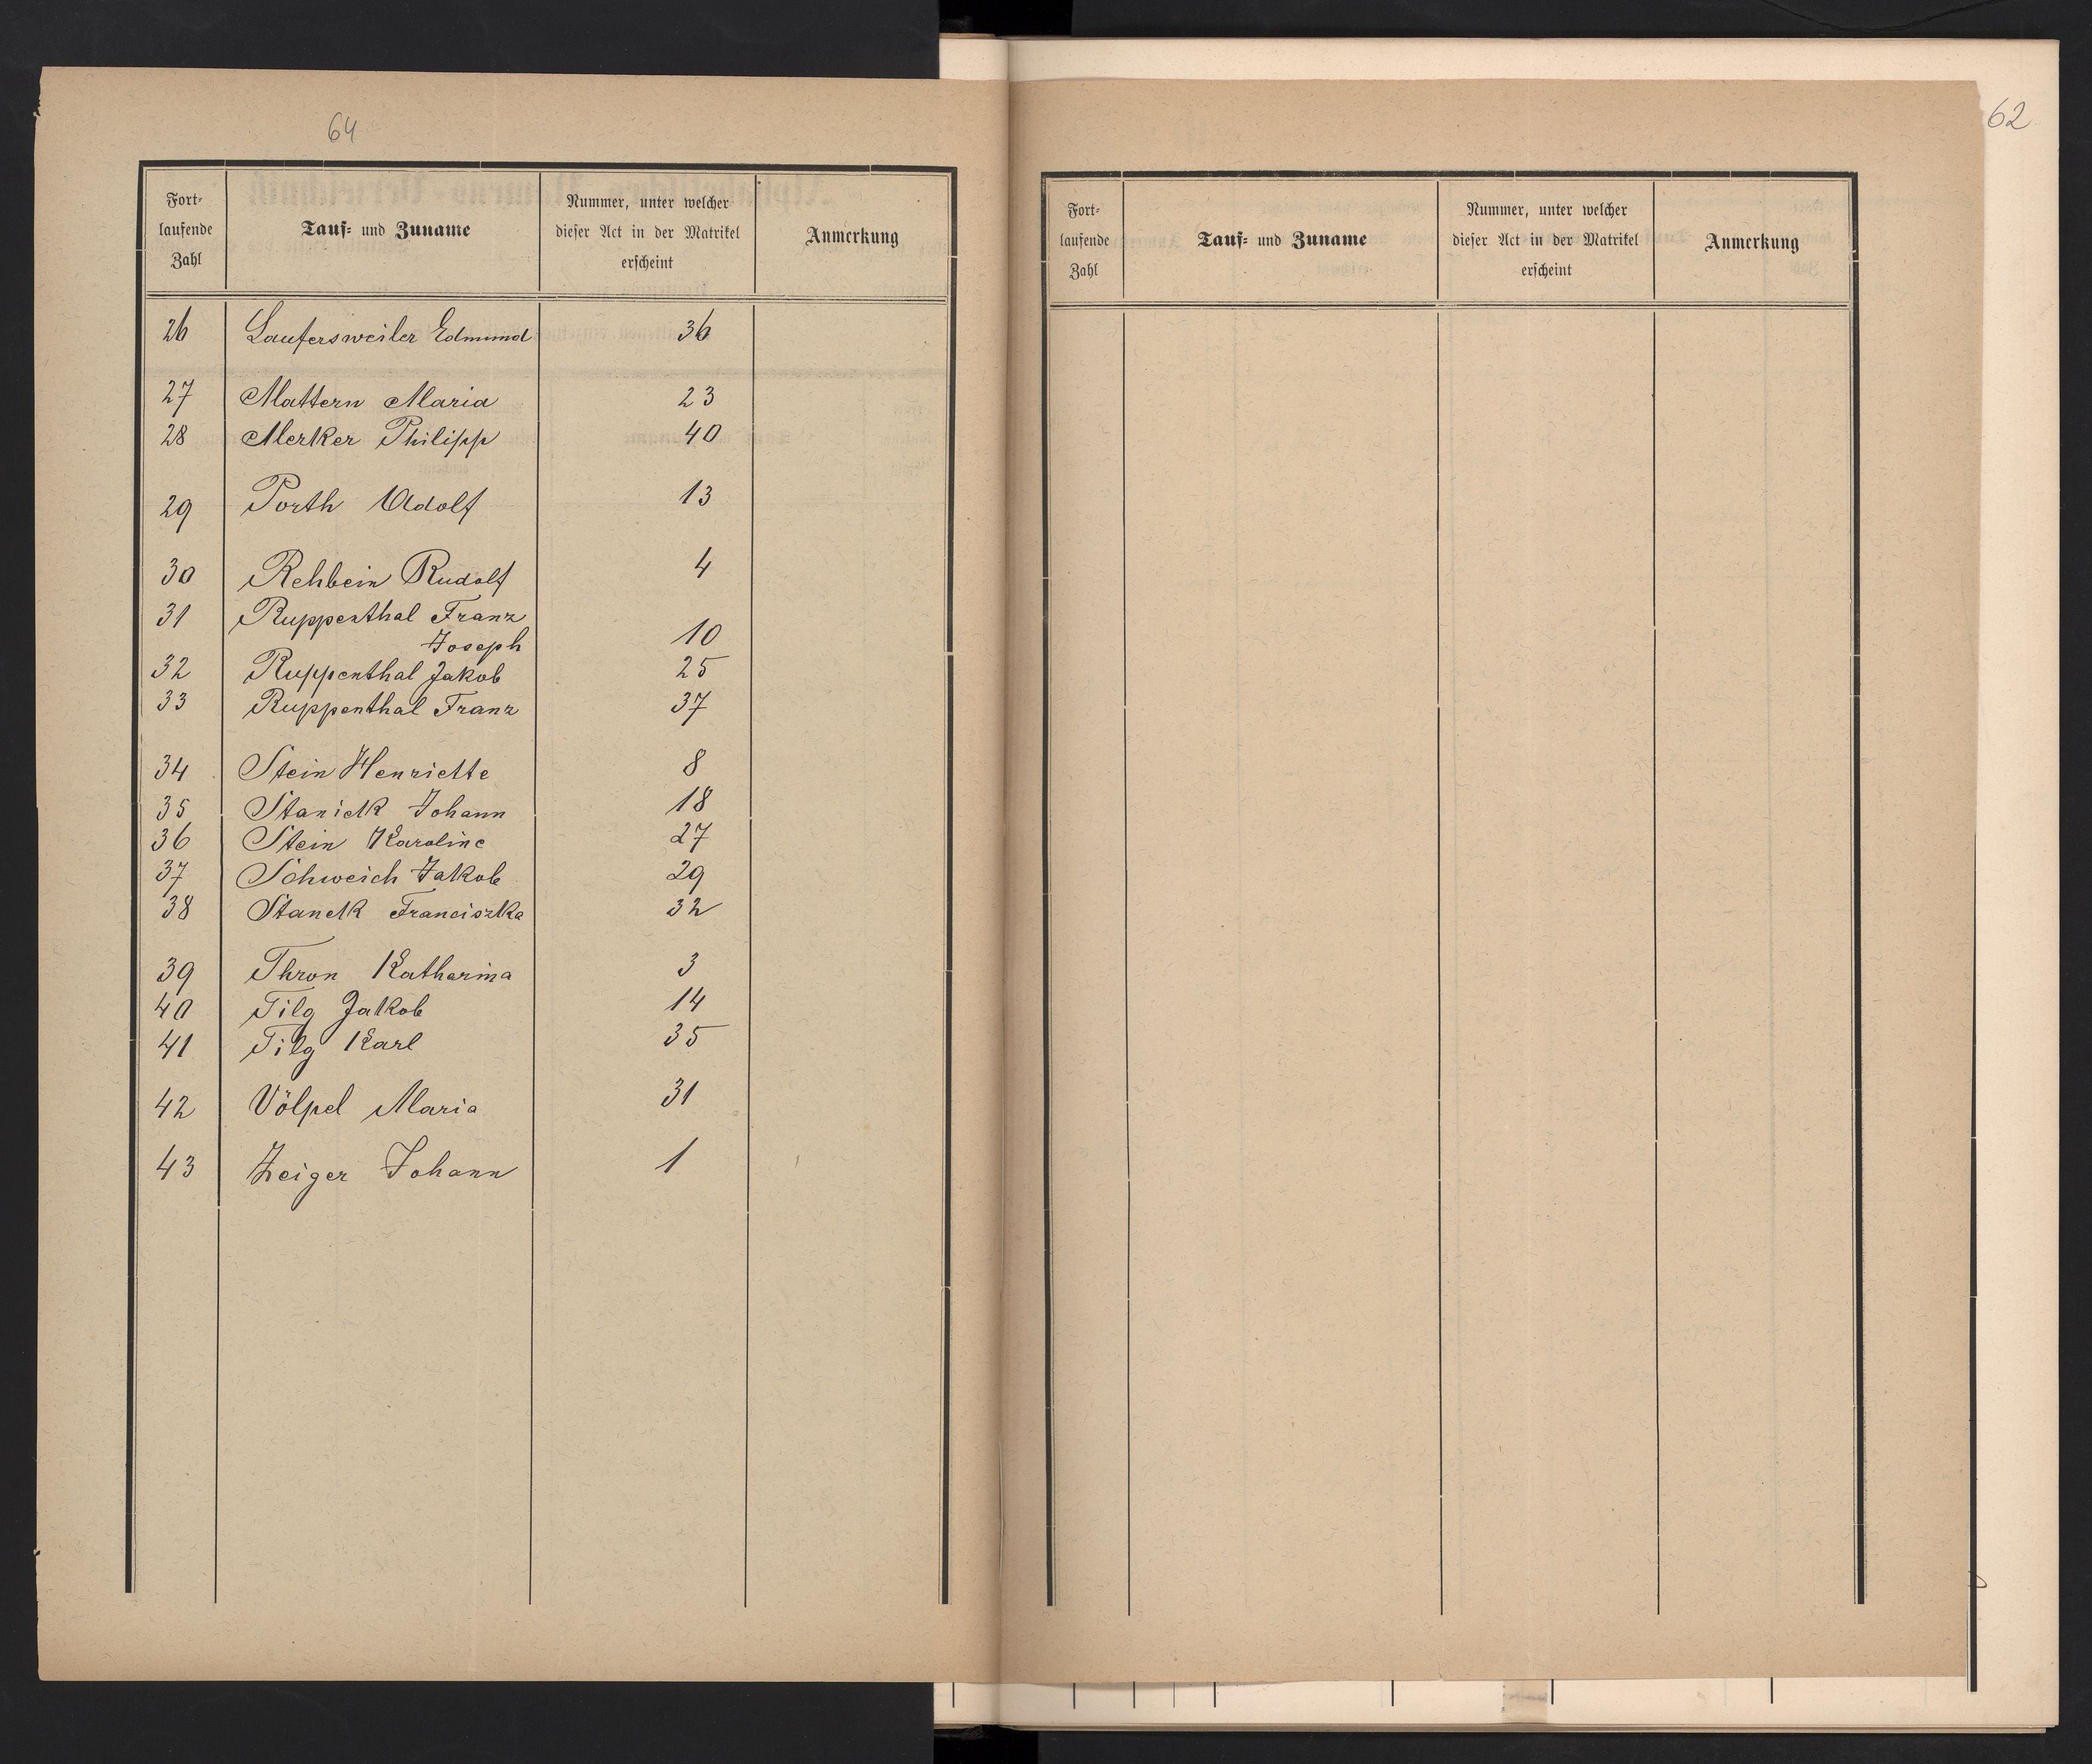 64
Fort-
laufende
Zahl
Tauf- und Zuname
Nummer, unter welcher
dieser Act in der Matrikel
erscheint
Anmerkung
26 Laufersweiler Edmund 36
27 Mattern Maria 23
28 Merker Philipp 40
29 Porth Adolf 13
30 Rehbein Rudolf 4
31 Ruppenthal Franz
Joseph 10
32 Ruppenthal Jakob 25
33 Ruppenthal Franz 37
34 Stein Henriette 8
35 Stanick Johann 18
36 Stein Karoline 27
37 Schweich Jakob 29
38 Stanek Franciszka 32
39 Thron Katharina 3
40 Tilg Jakob 14
41 Tilg Karl 35
42 Völpel Maria 31
43 Zeiger Johann 1
62
Fort-
laufende
Zahl
Tauf- und Zuname
Nummer, unter welcher
dieser Act in der Matrikel
erscheint
Anmerkung